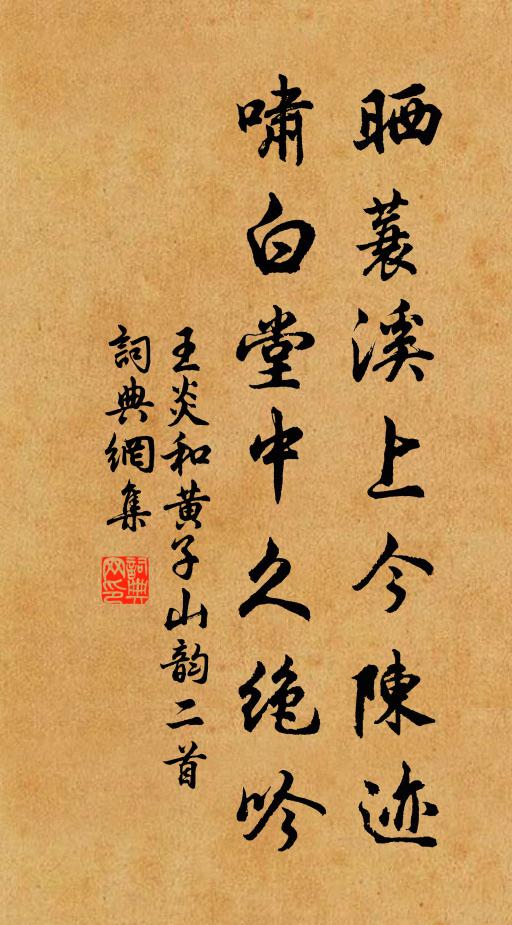 晒蓑溪上今陳迹
啸白堂中久绝吟
王炎和黄子山韵二首
詞典網集
詞典网印